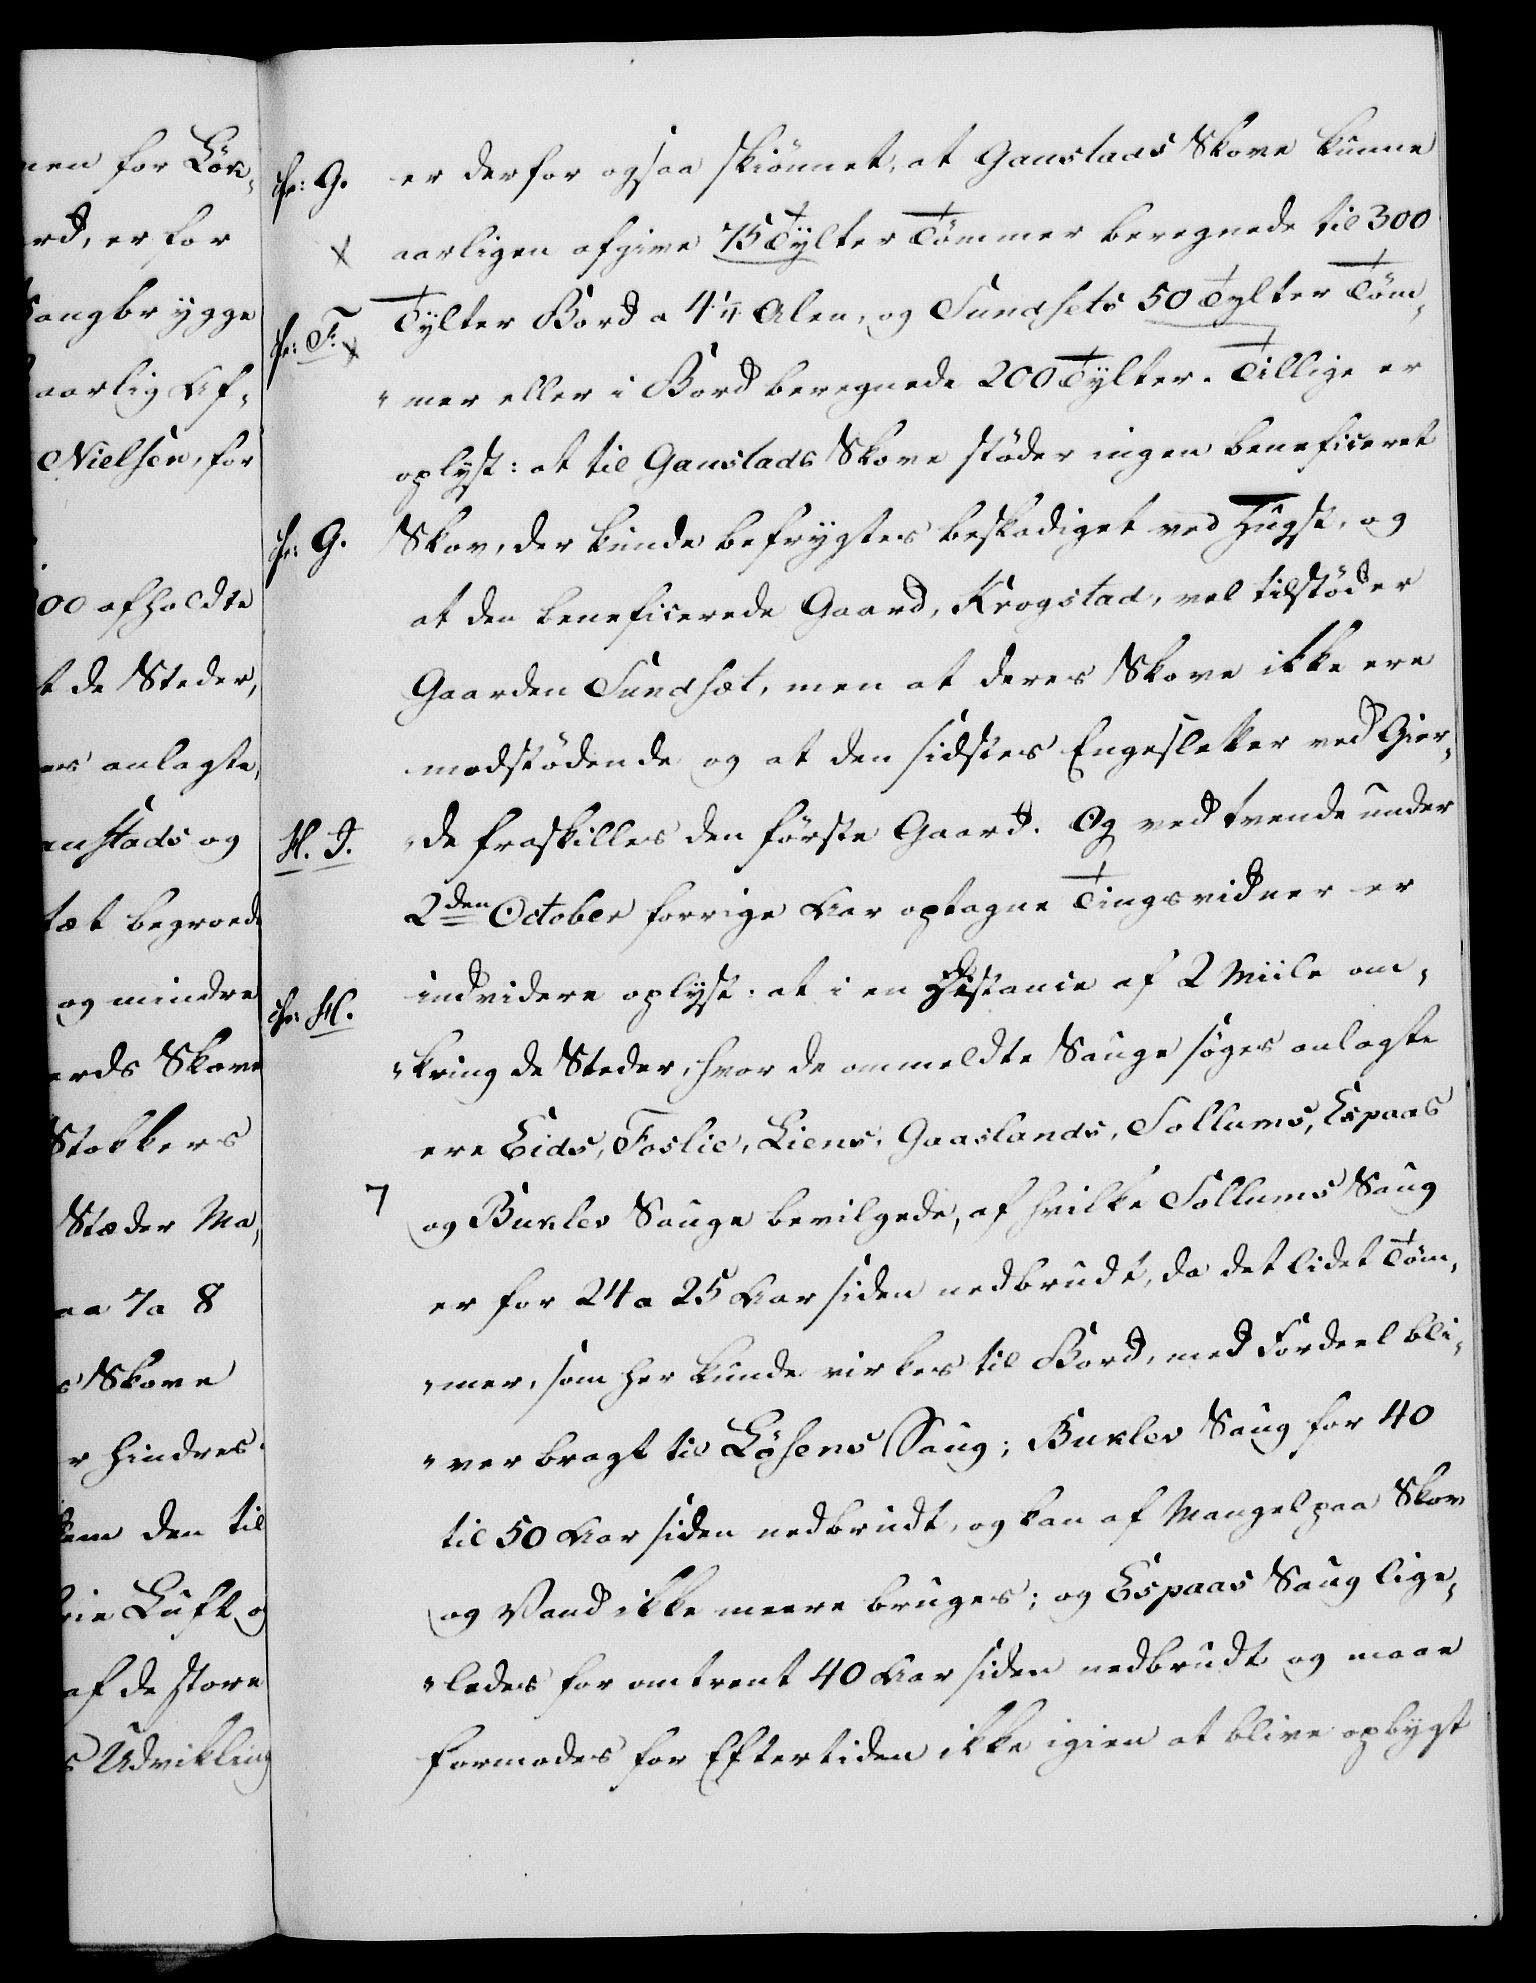 nen for Lök„
rd, er for
Saugbrygge
aarlig Af„
Nielsen, for
00 afholdte
t de Steder,
er anlagte,
anstads og
tæt begroed
og mindre
erds Skove
Stokkers
Stæder Ma„
aa 7 a 8
s Skove
r hindres
dem den til
rie Luft og
af de store
s Udvikling
cfr: G.
er derfor ogsaa skiönnet, at Ganstads Skove kunne
x
aarligen afgive 75 Tylter Tömmer beregnede til 300
cfr: F. x
Tylter Bord a 4 1/4 Alen, og Sundsets 50 Tylter Töm„
„mer eller i Bord beregnede 200 Tylter. Tillige er
oplyst: at til Ganstads Skove stöder ingen beneficeret
cfr: G.
Skov, der kunde befrygtes beskadiget ved Hugst, og
at den beneficerede Gaard, Krogstad, vel tilstöder
Gaarden Sundsæt, men at deres Skove ikke ere
modstödende og at den sidstes Engesletter ved Gier„
H. I.
„de fraskilles den förste Gaard. Og ved tvende under
2den October forrige Aar optagne Tingsvidner er
cfr: H.
indvidere oplyst: at i en Distance af 2 Miile om„
„kring de Steder, hvor de ommeldte Sauge söges anlagte
ere Eids, Foslie, Liens, Gaaslands, Sollums, Espaas
7
og Buxlev Sauge bevilgede, af hvilke Sollums Saug
er for 24 a 25 Aar siden nedbrudt, da det lidet Töm„
„mer, som her kunde virkes til Bord, med Fordeel bli„
„ver bragt til Lösens Saug; Buxlev Saug for 40
til 50 Aar siden nedbrudt, og kan af Mangel paa Skov
og Vand ikke meere bruges; og Espaas Saug lige„
„ledes for omtrent 40 Aar siden nedbrudt og maae
formodes for Eftertiden ikke igien at blive opbygt